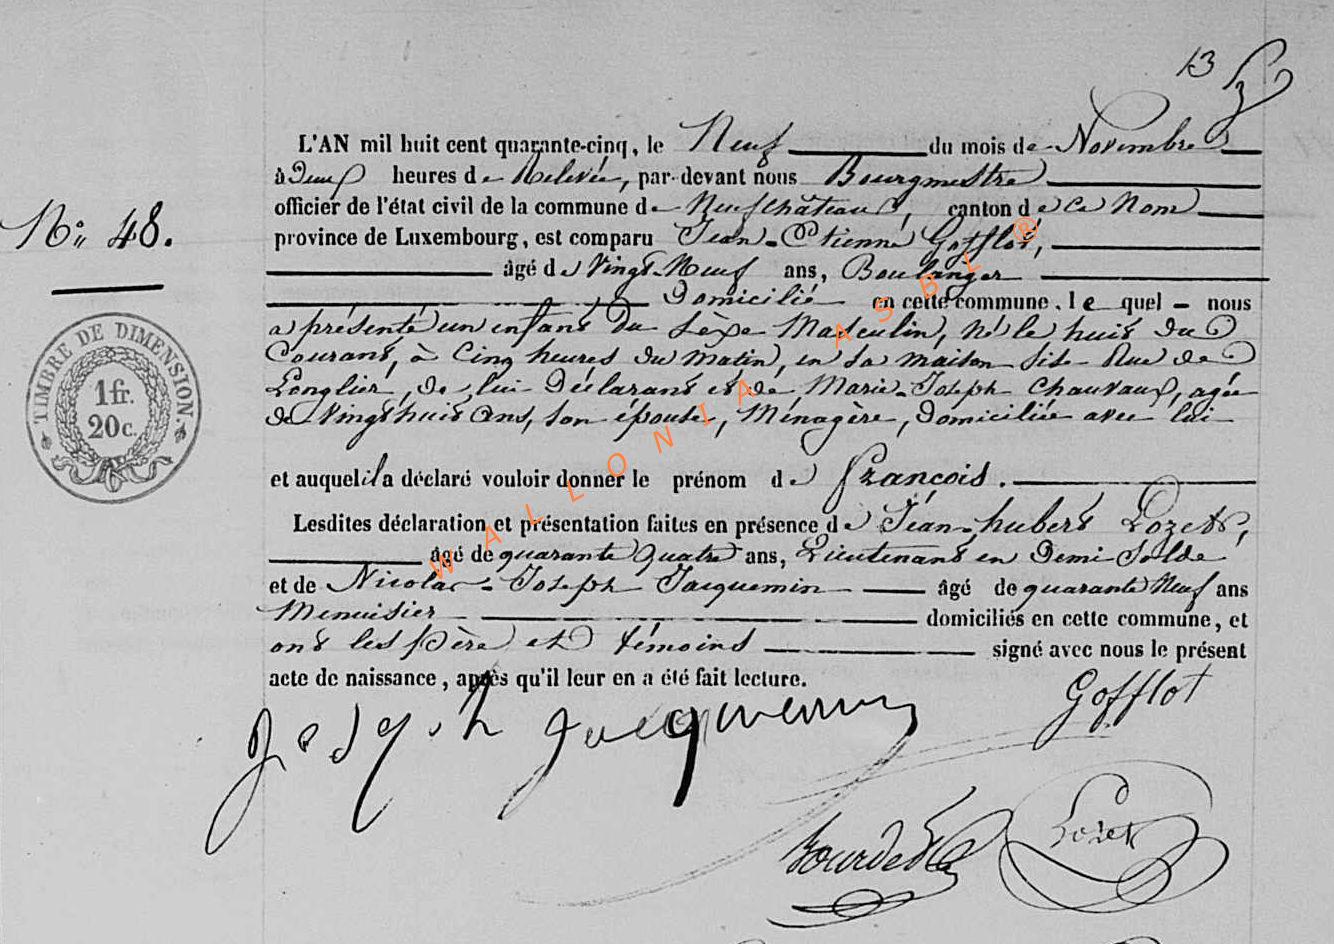 13
L'AN mil huit cent quarante-cinq, le Neuf du mois de Novembre
à Deux heures de Relevée, par-devant nous Bourgmestre
officier de l'état civil de la commune de Neufchâteau, canton de ce Nom
N° 48.
province de Luxembourg, est comparu Jean-Etienne Gofflot,
âgé de Vingt-Neuf ans, Boulanger
Domicilié en cette commune, lequel - nous
a présenté un enfant du Sèxe Masculin, né le huit du
Courant, à Cinq heures du matin, en sa maison sise Rue de
Longlier, de lui Déclarant et de Marie-Joseph Chauvaux, agée
de Vingt huit ans, son épouse, Ménagère, Domiciliée avec lui
TIMBRE DE DIMENSION.
1 fr.
20 c.
et auquel il a déclaré vouloir donner le prénom de François.
Lesdites déclaration et présentation faites en présence de Jean-hubert Lozet,
âgé de quarante Quatre ans, Lieutenant en Demi Solde
et de Nicolas-Joseph Jacquemin âgé de quarante Neuf ans
Menuisier domiciliés en cette commune, et
ont les père et témoins signé avec nous le présent
acte de naissance, après qu'il leur en a été fait lecture.
Gofflot
Joseph Jacquemin
Lozet
WALLONIA ASBL ®